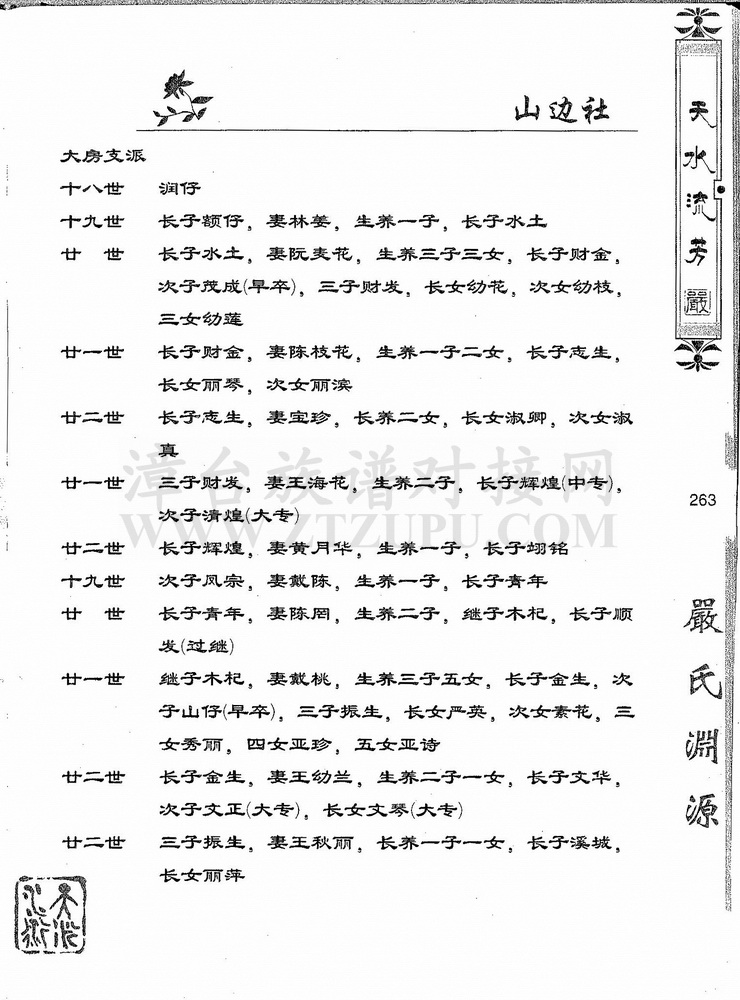 山边社
大房支派
十八世 润仔
十九世 长子额仔，妻林姜，生养一子，长子水土
廿 世 长子水土，妻阮麦花，生养三子三女，长子财金，
次子茂成(早卒)，三子财发，长女幼花，次女幼枝，
三女幼莲
廿一世 长子财金，妻陈枝花，生养一子二女，长子志生，
长女丽琴，次女丽滨
廿二世 长子志生，妻宝珍，长养二女，长女淑卿，次女淑
真
廿一世 三子财发，妻王海花，生养二子，长子辉煌(中专)，
次子清煌(大专)
廿二世 长子辉煌，妻黄月华，生养一子，长子翊铭
十九世 次子凤宗，妻戴陈，生养一子，长子青年
廿 世 长子青年，妻陈罔，生养二子，继子木杞，长子顺
发(过继)
廿一世 继子木杞，妻戴桃，生养三子五女，长子金生，次
子山仔(早卒)，三子振生，长女严英，次女素花，三
女秀丽，四女亚珍，五女亚诗
廿二世 长子金生，妻王幼兰，生养二子一女，长子文华，
次子文正(大专)，长女文琴(大专)
廿二世 三子振生，妻王秋丽，长养一子一女，长子溪城，
长女丽萍
天水流芳
嚴
263
嚴氏淵源
漳台族谱对接网
WWW.ZTZUPU.COM